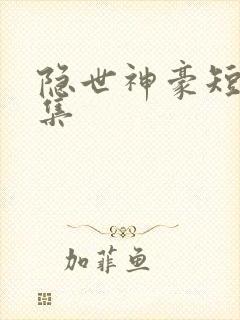 隐世神豪短
集
加菲鱼